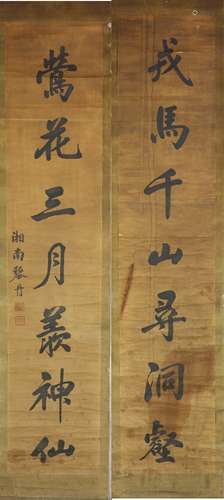 戎馬千山尋洞壑
鶯花三月羨神仙
湘南黎丹